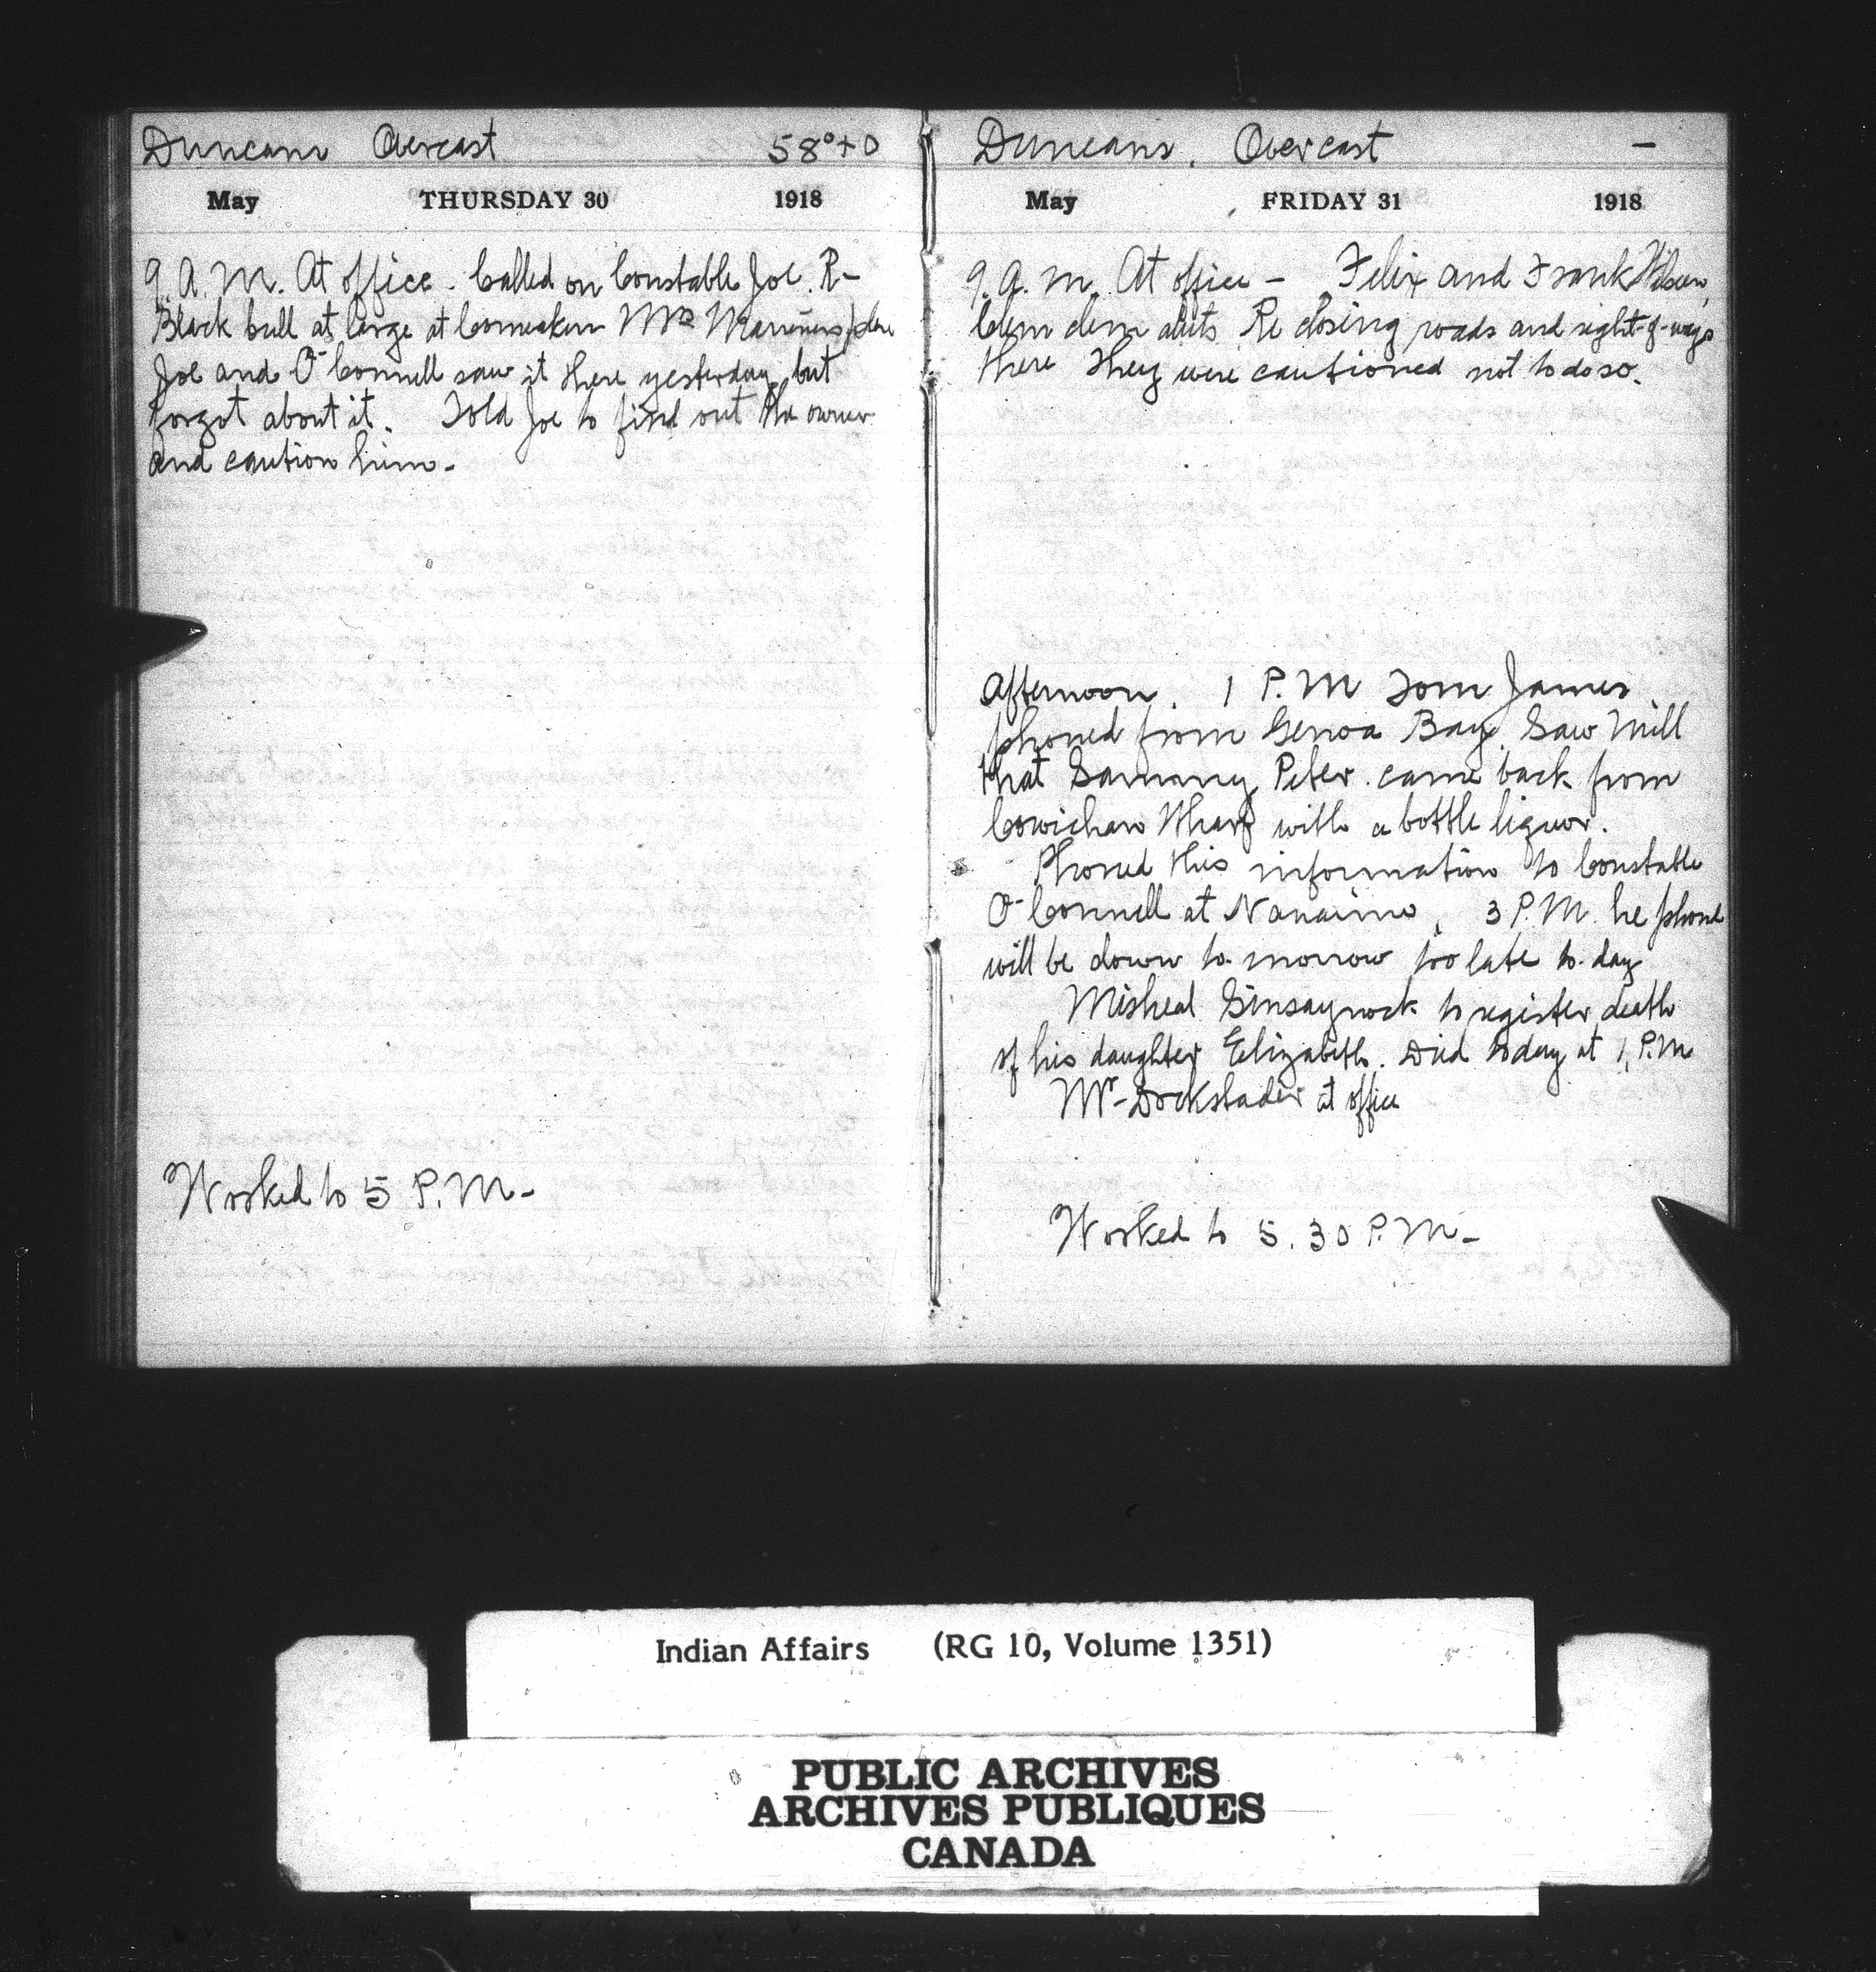 Duncans Overcast 58°+0
May THURSDAY 30 1918
9. A. M. At office. Called on Constable Joe. R-
Black bull at large at Comeaken Mrs Marriners place
Joe and O'Connell saw it there yesterday, but
forgot about it. Told Joe to find out the owner
and caution him-
Worked to 5 P.M-
Duncans. Overcast -
May FRIDAY 31 1918
9. A. M. At office - Felix and Frank Wilson,
Clem clem Re closing roads and right-of-ways
there They were cautioned not to do so.
Afternoon. 1 P.M Tom James
phoned from Genoa Bay Saw Mill
that Sammy Peter. came back from
Cowichan Wharf with a bottle liquor.
Phoned this information to Constable
O'Connell at Nanaimo, 3 P.M. he phone
will be down to-morrow too late to-day
Misheal to register death
of his daughter Elizabeth. Died today at 1, P.M
Mr- Dockstader at office
Worked to 5.30 P.M-
Indian Affairs (RG 10, Volume 1351)
PUBLIC ARCHIVES
ARCHIVES PUBLIQUES
CANADA